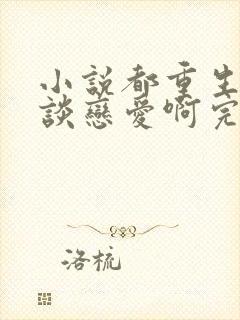 小說都重生
談戀愛啊完
洛梳